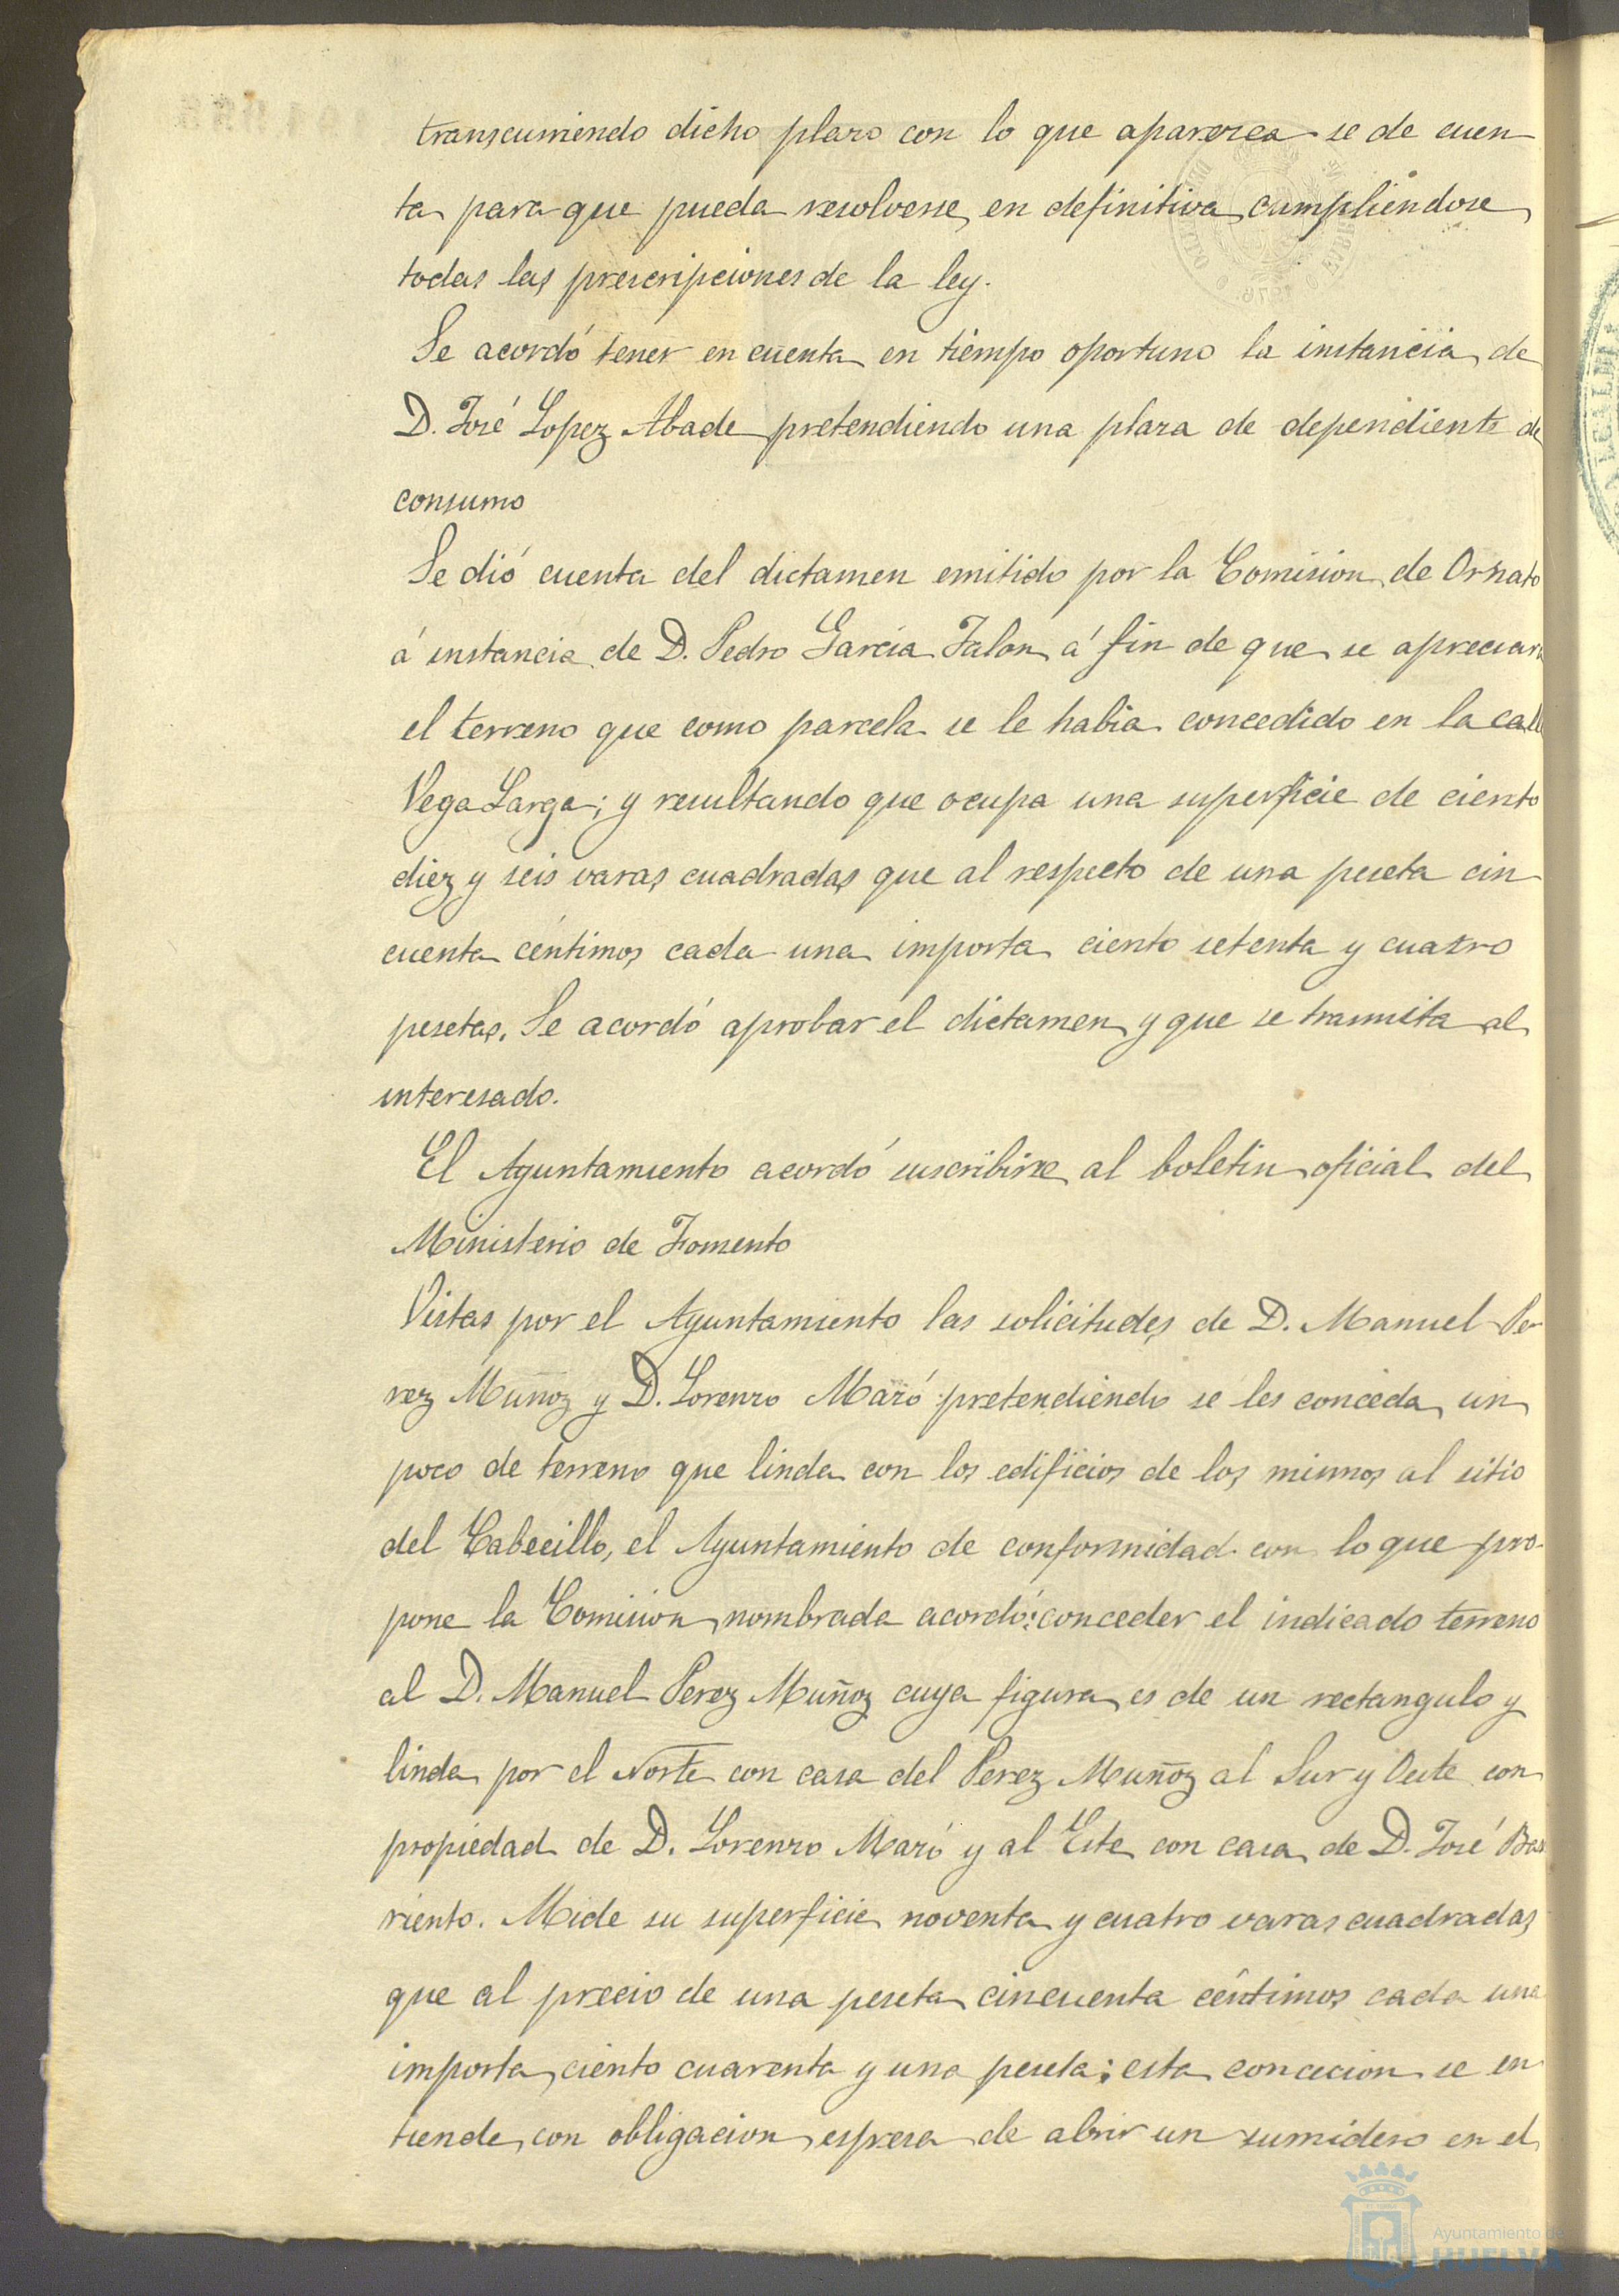 transcurriendo dicho plazo con lo que aparezca se de cuen
ta para que pueda resolverse en definitiva cumpliendose
todas las prescripciones de la ley.
Se acordó tener en cuenta en tiempo oportuno la instancia de
D. José Lopez Abade pretendiendo una plaza de dependiente de
consumo
Se dió cuenta del dictamen emitido por la Comision de Ornato
á instancia de D. Pedro Garcia Jalon á fin de que se apreciara
el terreno que como parcela se le habia concedido en la calle
Vega Larga; y resultando que ocupa una superficie de ciento
diez y seis varas cuadradas que al respecto de una peseta cin
cuenta céntimos cada una importa ciento setenta y cuatro
pesetas. Se acordó aprobar el dictamen y que se transmita al
interesado.
El Ayuntamiento acordó suscribirse al boletin oficial del
Ministerio de Fomento
Vistas por el Ayuntamiento las solicitudes de D. Manuel Pe-
rez Muñoz y D. Lorenzo Mazó pretendiendo se les conceda un
poco de terreno que linda con los edificios de los mismos al sitio
del Cabecillo, el Ayuntamiento de conformidad con lo que pro-
pone la Comision nombrada acordó: conceder el indicado terreno
al D. Manuel Perez Muñoz cuya figura es de un rectangulo y
linda por el Norte con casa del Perez Muñoz al Sur y Oeste con
propiedad de D. Lorenzo Mazó y al Este con casa de D. José Bar
riento. Mide su superficie noventa y cuatro varas cuadradas
que al precio de una peseta cincuenta céntimos cada una
importa ciento cuarenta y una peseta; esta concecion se en
tiende con obligacion espresa de abrir un sumidero en el
Ayuntamiento de
HUELVA